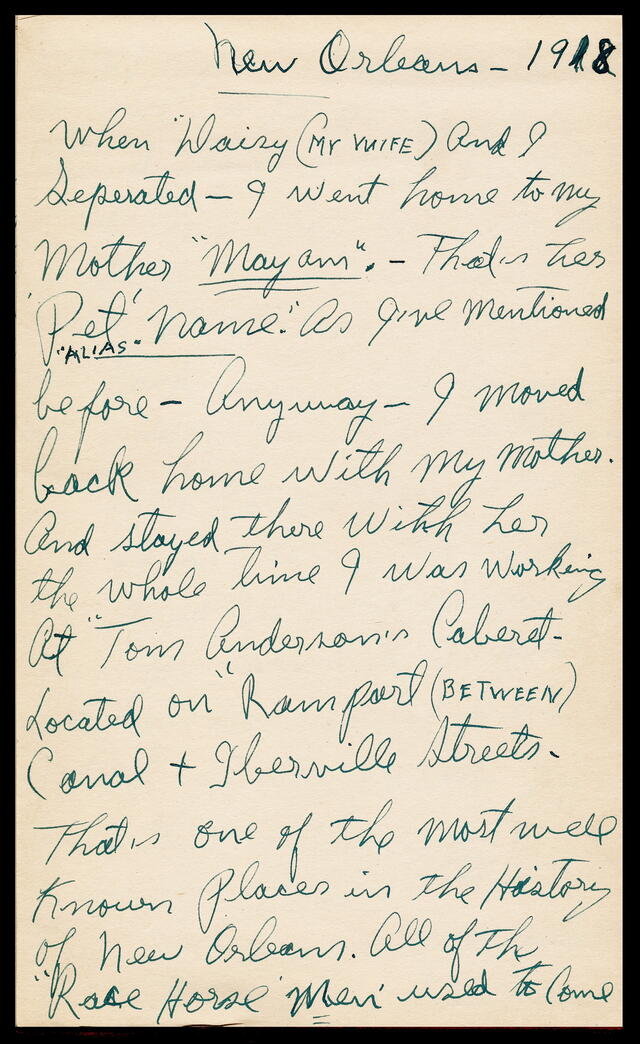 New Orleans – 1918
When "Daisy (MY WIFE) And I
Seperated – I went home to my
Mother "Mayann". – That's her
'Pet' Name." As I've Mentioned
"ALIAS"
before – Anyway – I moved
back home with my Mother.
And stayed there with her
the whole time I was working
At "Tom Anderson's Caberet–
Located on "Rampart (BETWEEN)
Canal + Iberville Streets.
That's one of the most well
Known Places in the History
of New Orleans. All of the
"Race Horse 'Men' used to Come